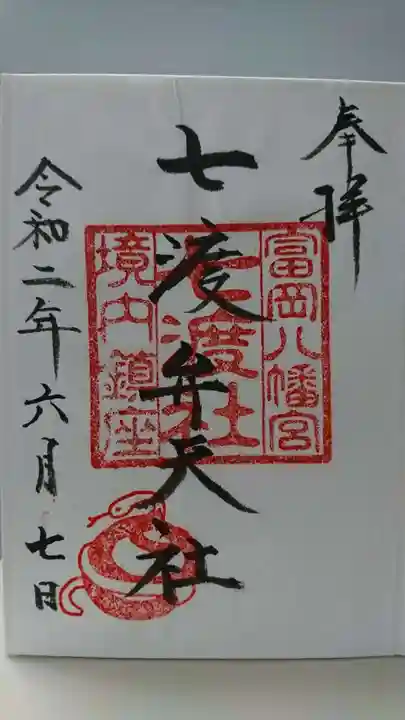 奉拝
七渡弁天社
富岡八幡宮
七渡社
境内鎮座
令和二年六月七日